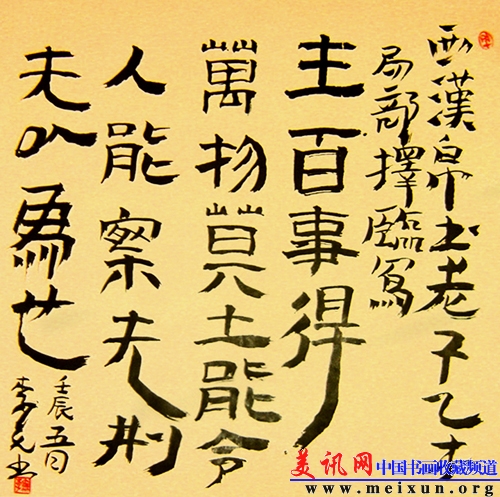 西漢帛書老子乙本
局部擇臨寫
主百事得
萬物莫土能令
人能察夫刑
夫以為也
壬辰五月
美讯网 中国书画收藏频道
www.meixun.org